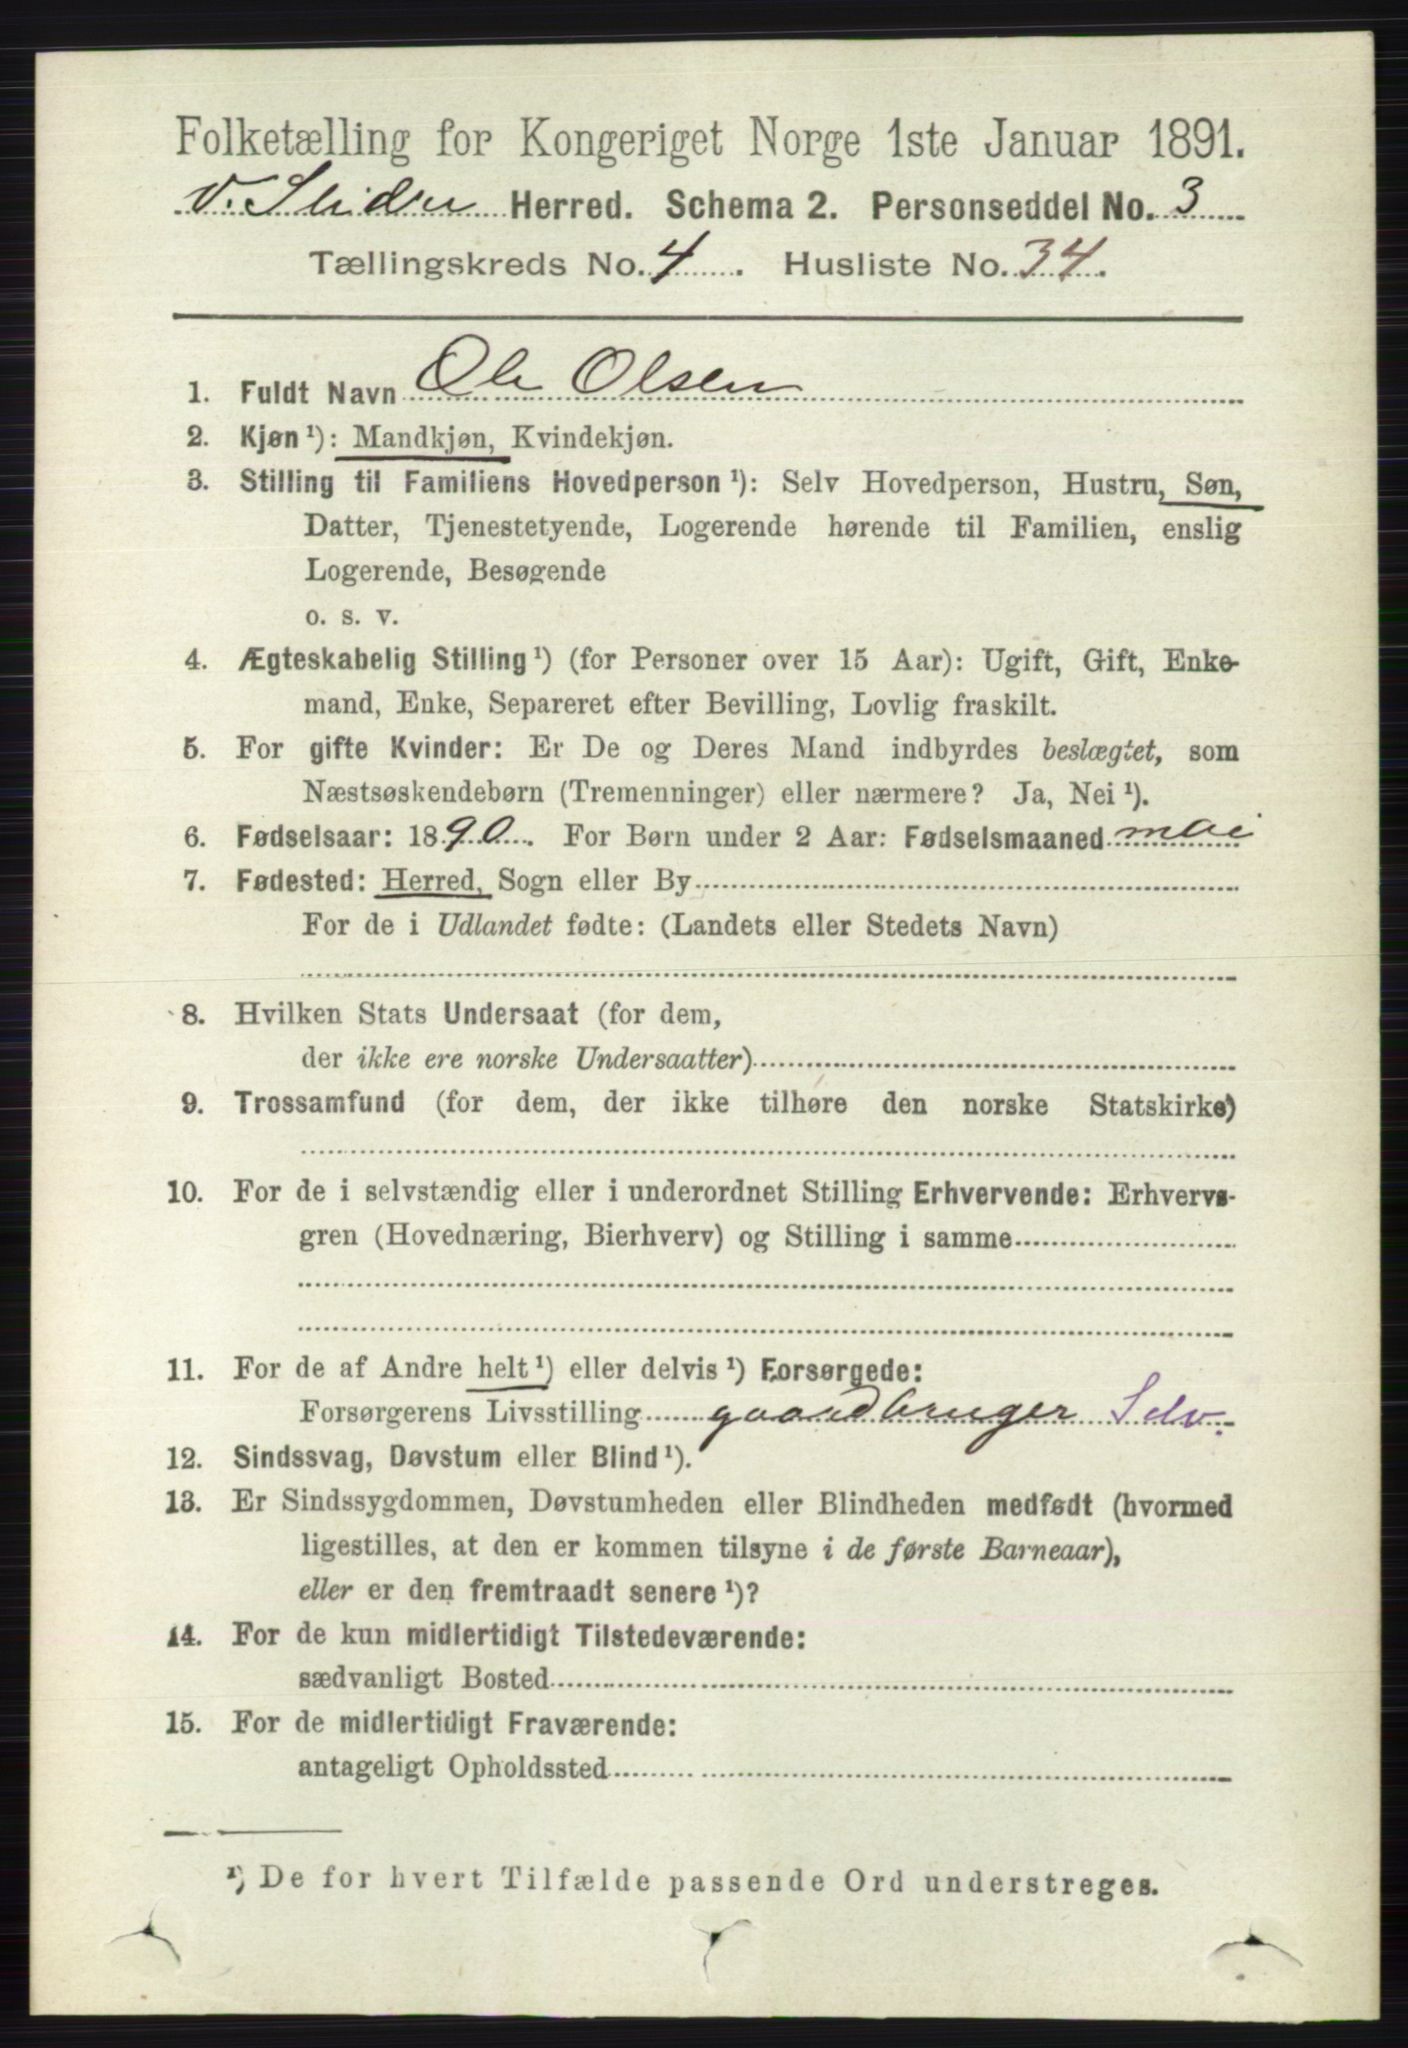 Folketælling for Kongeriget Norge 1ste Januar 1891.
V. Slidre Herred. Schema 2. Personseddel No. 3
Tællingskreds No. 4. Husliste No. 34.
1. Fuldt Navn Ole Olsen
2. Kjøn ¹): Mandkjøn, Kvindekjøn.
3. Stilling til Familiens Hovedperson ¹): Selv Hovedperson, Hustru, Søn,
Datter, Tjenestetyende, Logerende hørende til Familien, enslig
Logerende, Besøgende
o. s. v.
4. Ægteskabelig Stilling ¹) (for Personer over 15 Aar): Ugift, Gift, Enke-
mand, Enke, Separeret efter Bevilling, Lovlig fraskilt.
5. For gifte Kvinder: Er De og Deres Mand indbyrdes beslægtet, som
Næstsøskendebørn (Tremenninger) eller nærmere? Ja, Nei ¹).
6. Fødselsaar: 1890. For Børn under 2 Aar: Fødselsmaaned mai
7. Fødested: Herred, Sogn eller By
For de i Udlandet fødte: (Landets eller Stedets Navn)
8. Hvilken Stats Undersaat (for dem,
der ikke ere norske Undersaatter)
9. Trossamfund (for dem, der ikke tilhøre den norske Statskirke)
10. For de i selvstændig eller i underordnet Stilling Erhvervende: Erhvervs-
gren (Hovednæring, Bierhverv) og Stilling i samme
11. For de af Andre helt ¹) eller delvis ¹) Forsørgede:
Forsørgerens Livsstilling gaardbruger Selv.
12. Sindssvag, Døvstum eller Blind ¹).
13. Er Sindssygdommen, Døvstumheden eller Blindheden medfødt (hvormed
ligestilles, at den er kommen tilsyne i de første Barneaar),
eller er den fremtraadt senere ¹)?
14. For de kun midlertidigt Tilstedeværende:
sædvanligt Bosted
15. For de midlertidigt Fraværende:
antageligt Opholdssted
¹) De for hvert Tilfælde passende Ord understreges.